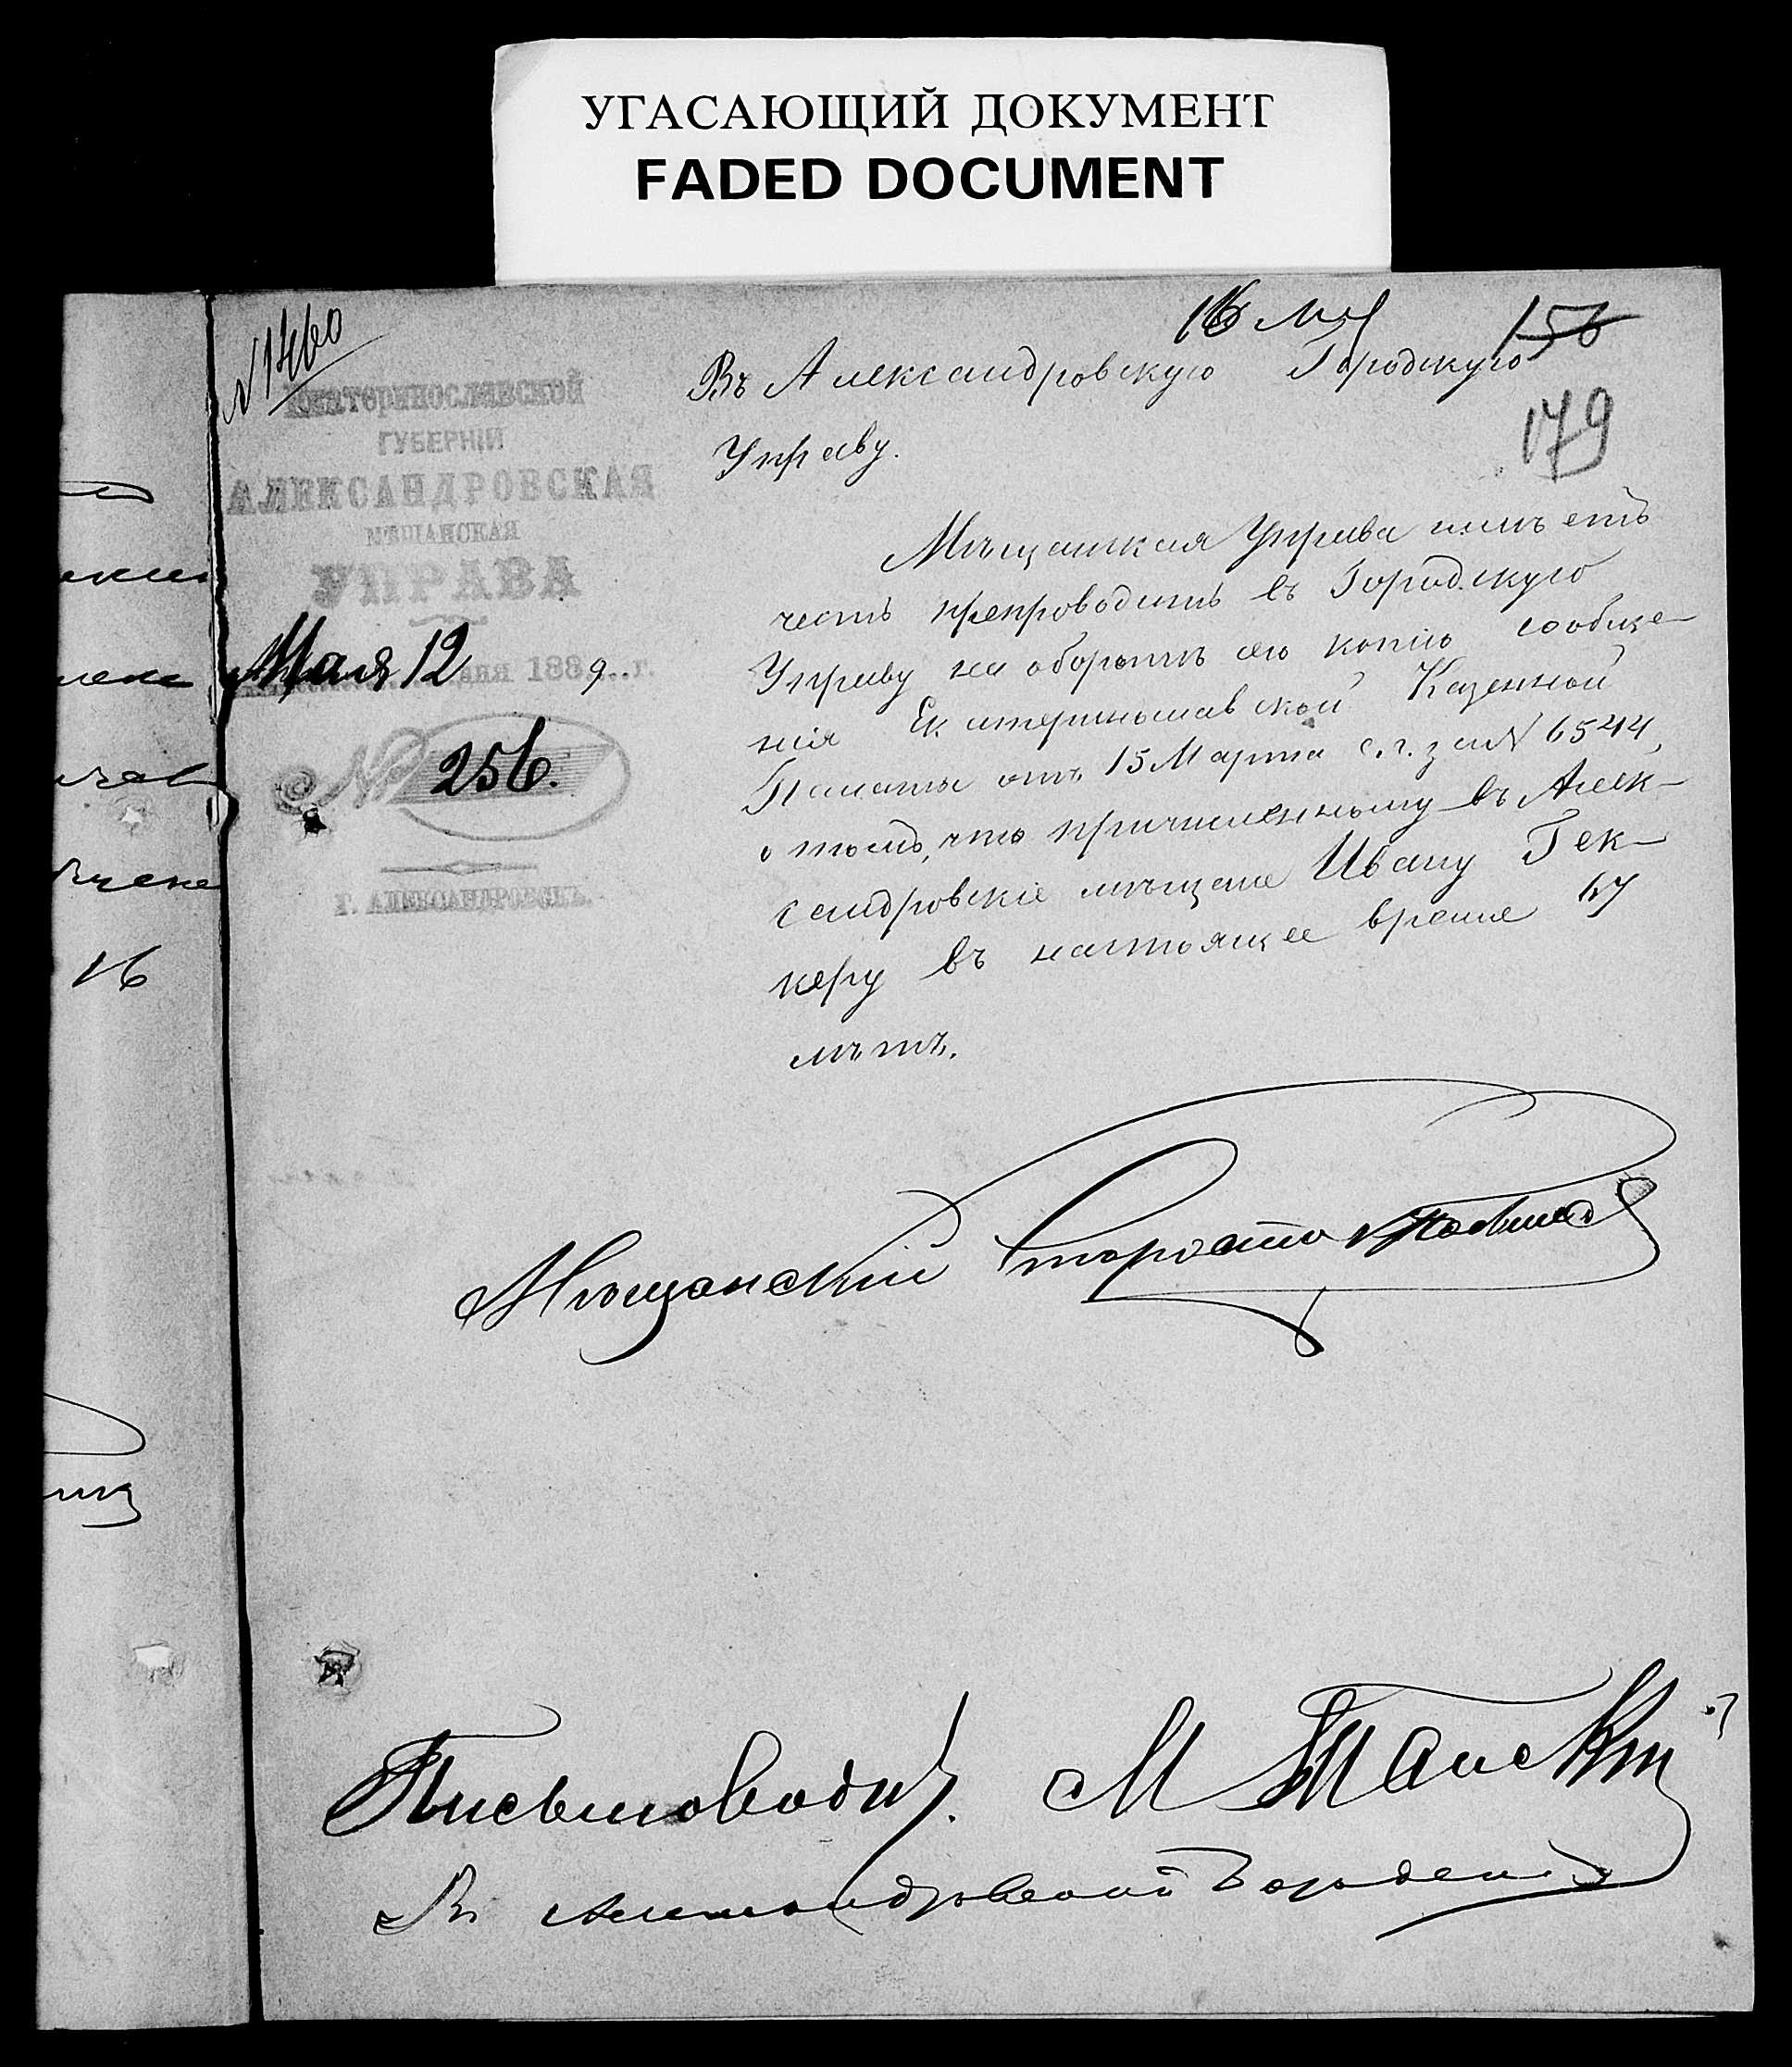 УГАСАЮЩИЙ ДОКУМЕНТ
FADED DOCUMENT
N 1460
16 Мая
156
179
Екатеринославской
ГУБЕРНІИ
АЛЕКСАНДРОВСКАЯ
МѢЩАНСКАЯ
УПРАВА
Мая 12 дня 1889 г.
№ 256.
Г. АЛЕКСАНДРОВСКЪ.
Въ Александровскую Городскую
Управу.
Мѣщанская Управа имѣетъ
честь препроводить въ Городскую
Управу на оборотѣ сего копію сообще-
нія Екатеринославской Казенной
Палаты отъ 15 Марта с. г. за N 6544,
о томъ, что причисленному въ Алек-
сандровскіе мѣщане Ивану Гек-
керу въ настоящее время 67
лѣтъ.
Мѣщанскій Староста
Письмоводит. М
Въ Александровской
16